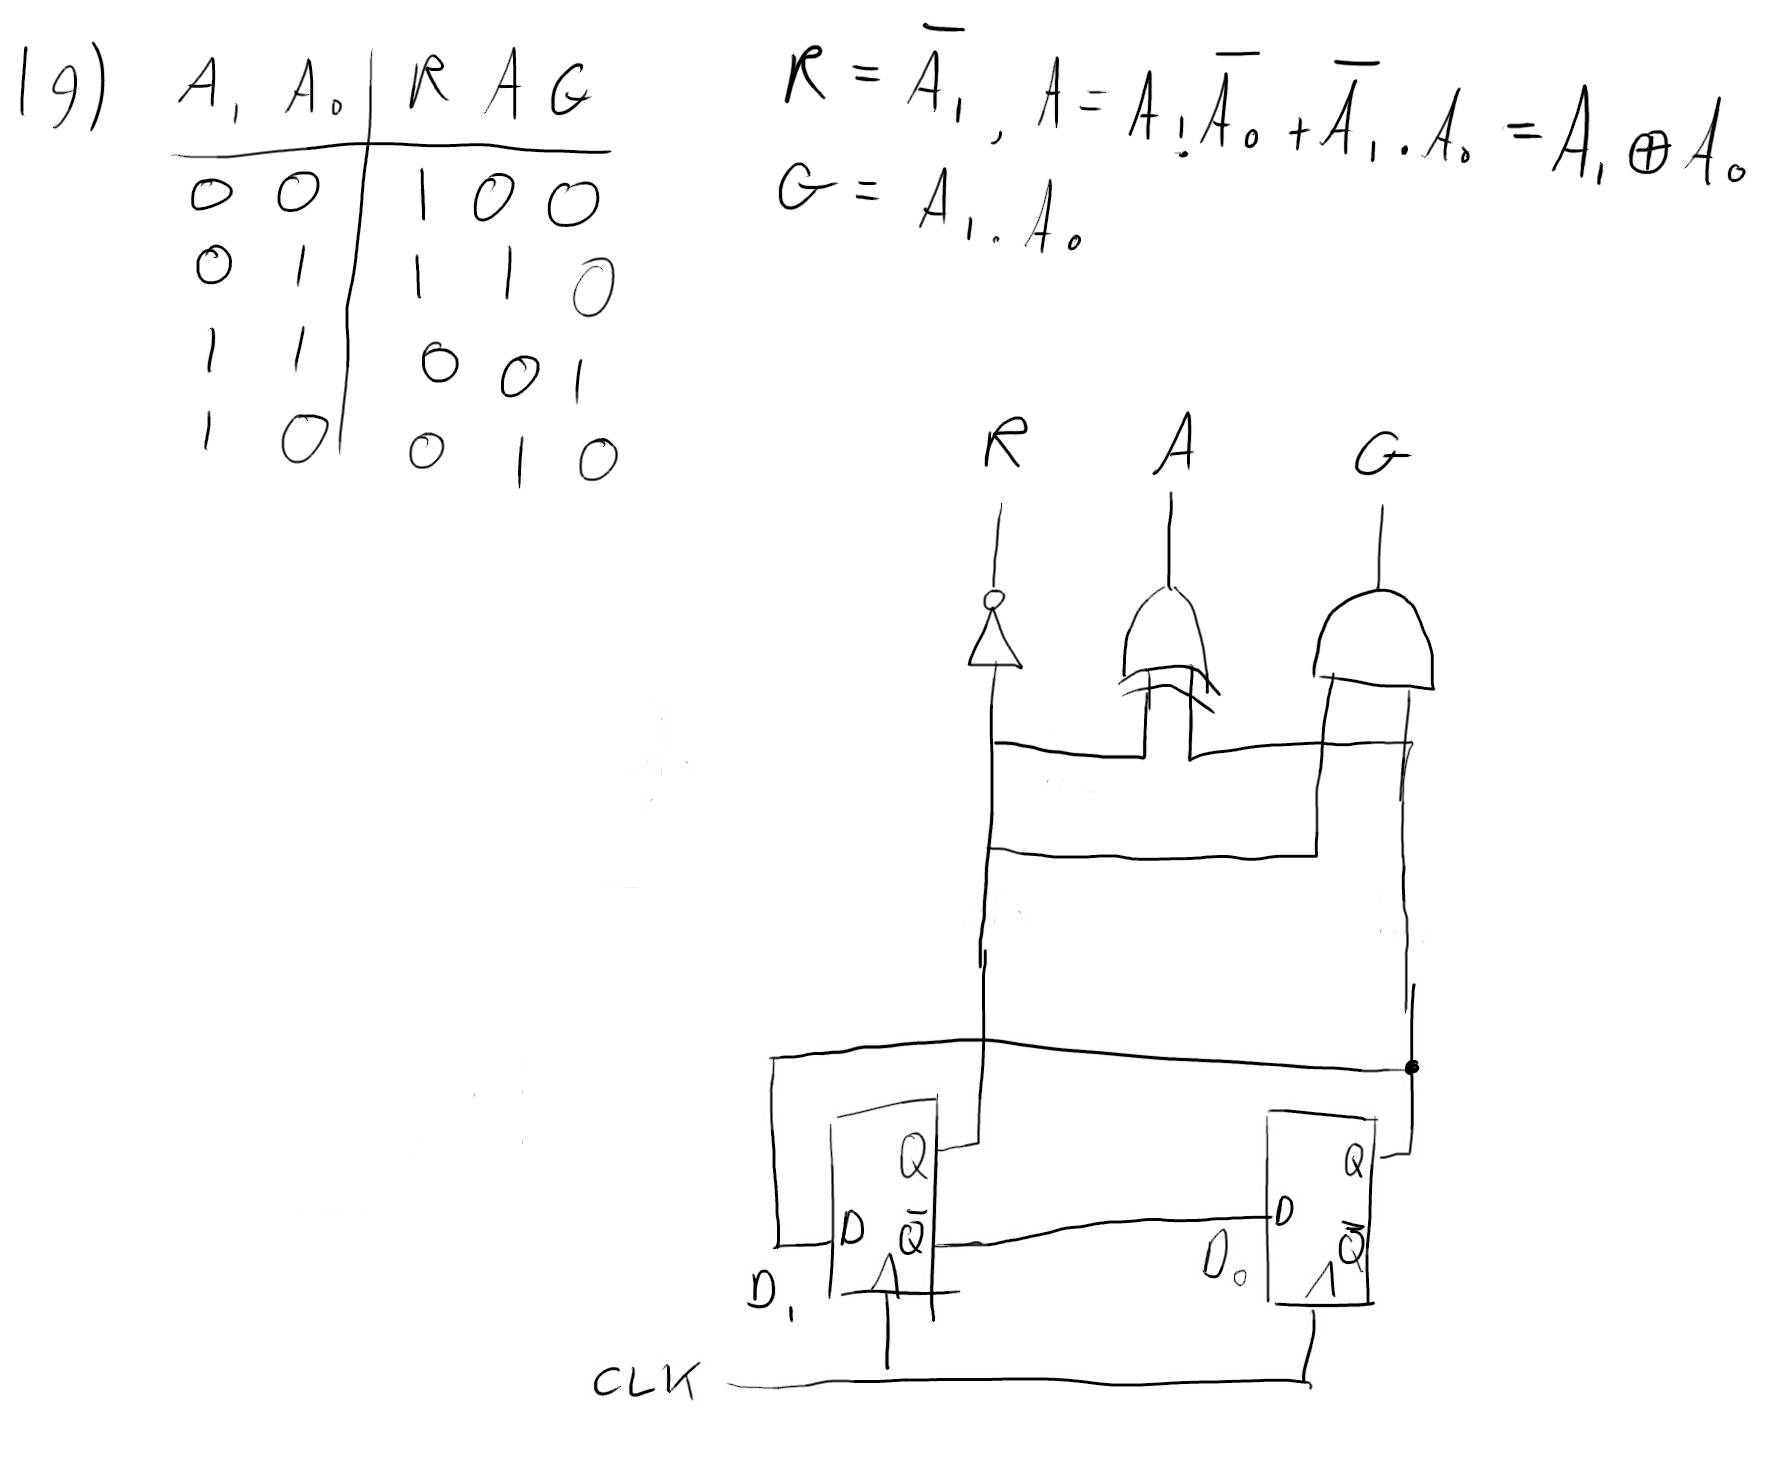 1g) A₁ A₀ | R A G
0 0 | 1 0 0
0 1 | 1 1 0
1 1 | 0 0 1
1 0 | 0 1 0
R = A̅₁, A = A₁.A̅₀ + A̅₁.A₀ = A₁ ⊕ A₀
G = A₁.A₀
R A G
Q Q
D Q̅ D Q̅
D₁ D₀
CLK